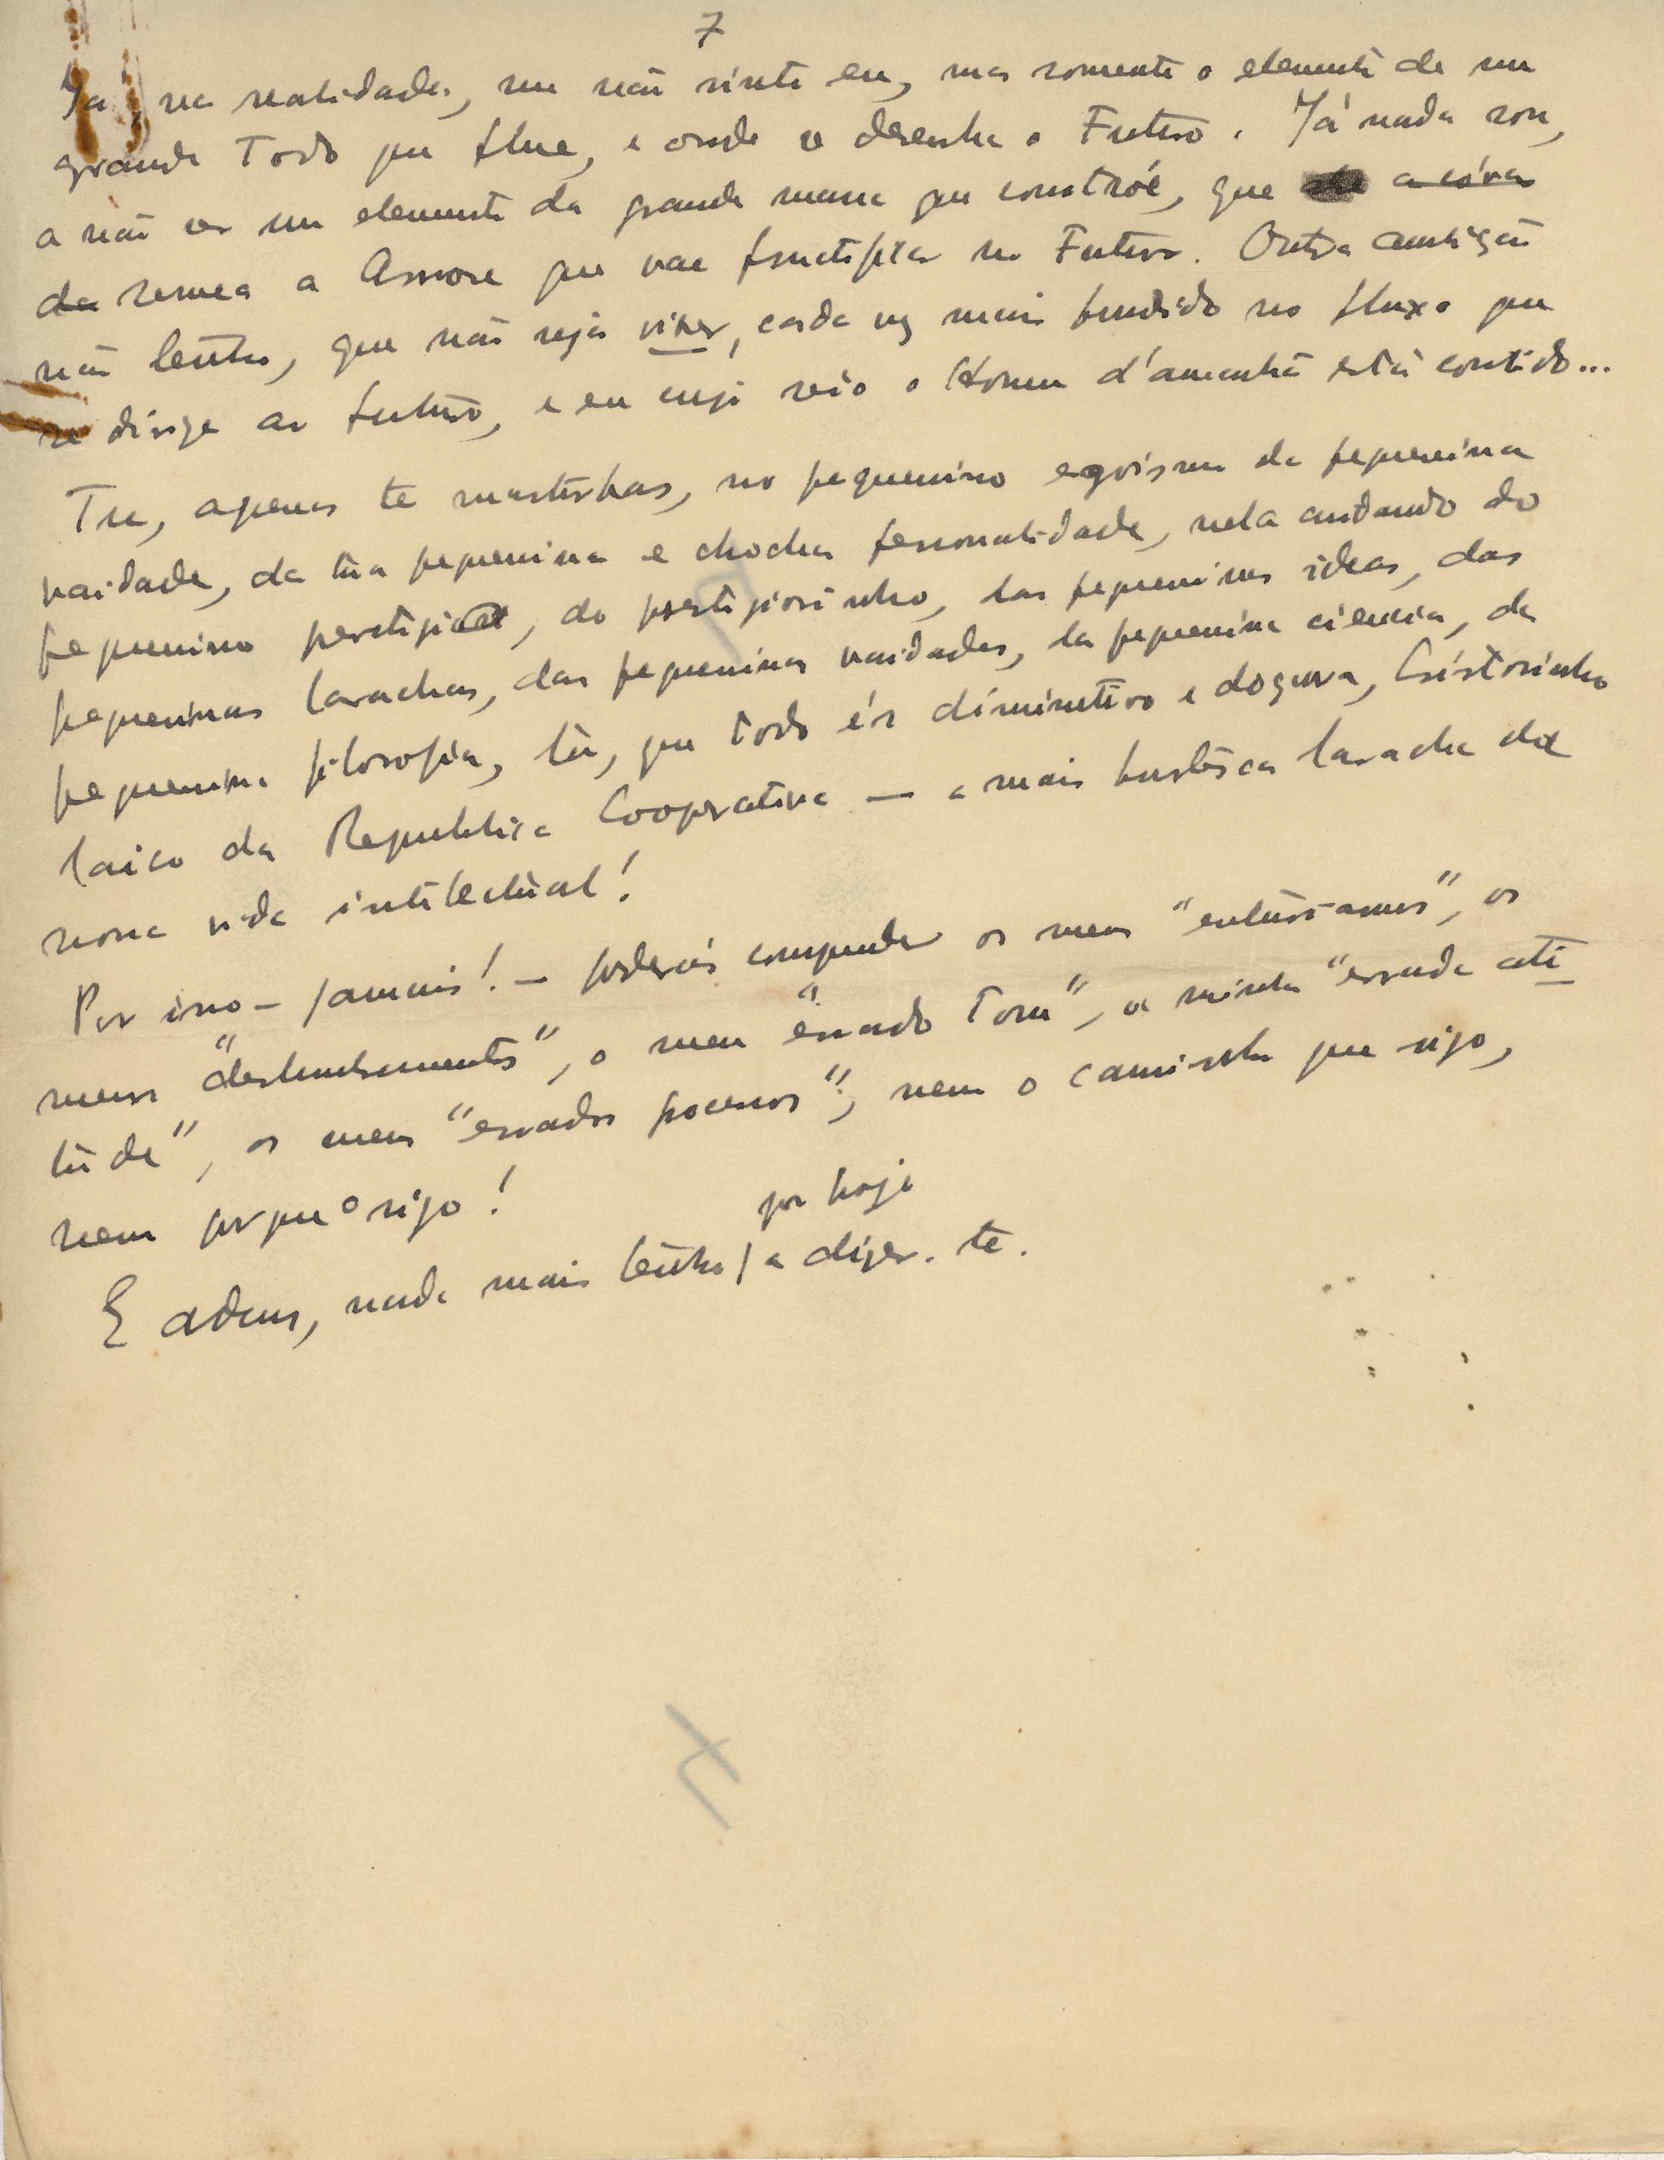 7
Já, na realidade, me não sinto eu, mas somente o elemento de um
grande Todo que flue, e onde se desenha o Futuro. Já nada sou,
a não ser um elemento da grande massa que constróe, que a cóva
da semea a Arvore que vae fructificar no Futuro. Outra ambição
não tenho, que não seja viver, cada vez mais fundido no fluxo que
se dirige ao futuro, e em cujo seio o Homem d'amanhã está contido...
Tu, apenas te masturbas, no pequenino egoismo da pequenina
vaidade, da tua pequenina e chocha personalidade, nela cuidando do
pequenino prestigio, do prestigiosinho, das pequeninas ideas, das
pequeninas larachas, das pequeninas vaidades, da pequenina ciencia, da
pequenina filosofia, tu, que todo és diminutivo e dogma, Cristosinho
laico da Republica Cooperativa — a mais burlésca laracha da
nossa vida intelectual!
Por isso - jamais! - poderás compreender os meus "entusiasmos", os
meus "deslumbramentos", o meu "errado Tom", a minha "errada ati-
tude", os meus "errados processos", nem o caminho que sigo,
nem porque o sigo!
por hoje
E adeus, nada mais tenho a dizer-te.